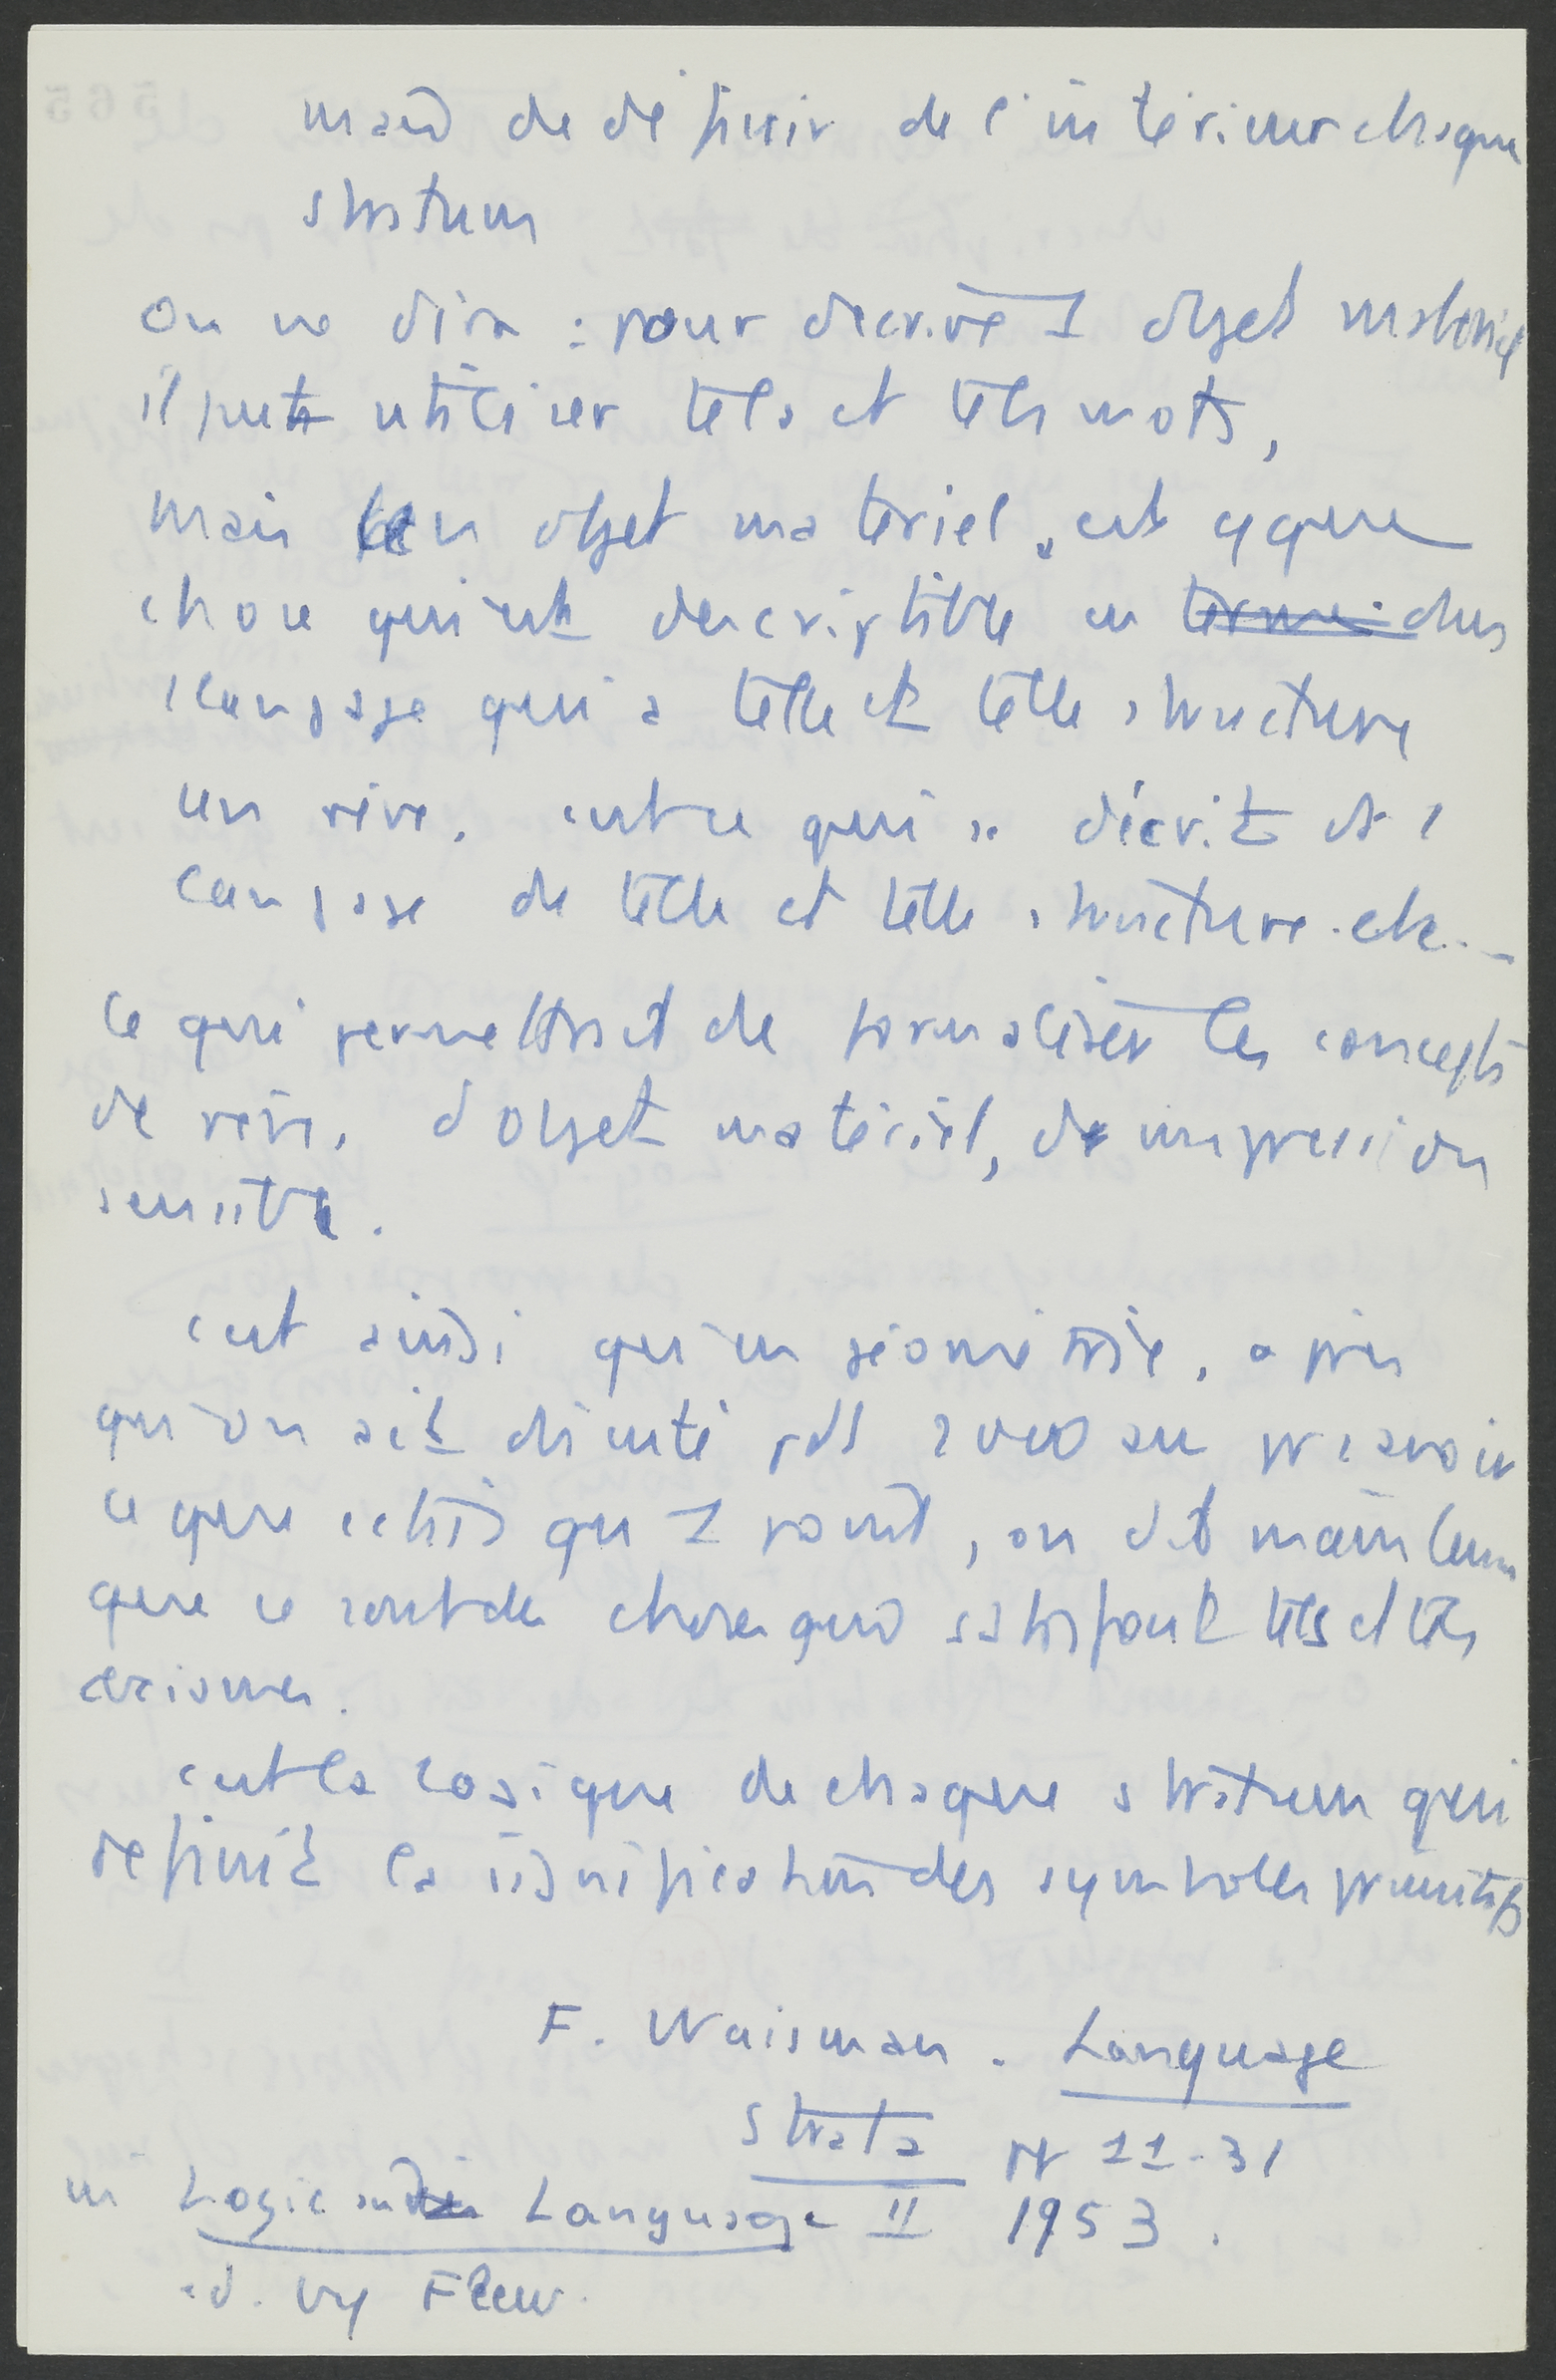 mais de définir de l'intérieur chaque
stratum
on ne dira : pour decrire 1 objet matériel
il faut utiliser tels et tels mots,
mais un objet materiel, est qque
chose qui est descriptible en termes dans
1 langage qui a telle et telle structure
un rêve, c'est ce qui se décrit ds 1
langage de telle et telle structure. etc..
Ce qui permettrait de formaliser les concepts
de rêve, d'objet matériel, de impression
sensible.
c'est ainsi qu'en géométrie, après
qu'on ait discuté pdt 2000 ans pr savoir
ce que c'était qu 1 point, on dit maintenant
que ce sont des choses qui satisfont tels et tels
axiomes.
c'est la logique de chaque stratum qui
definit la signification des symboles primitifs
F. Waisman. Language
Strata pp 11-31
in Logic and Language II 1953.
ed. by Flew.